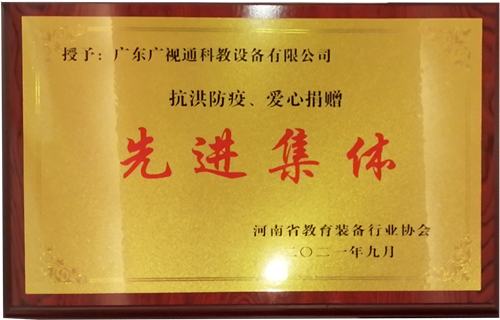 授予：广东广视通科教设备有限公司
抗洪防疫、爱心捐赠
先进集体
河南省教育装备行业协会
二〇二一年九月